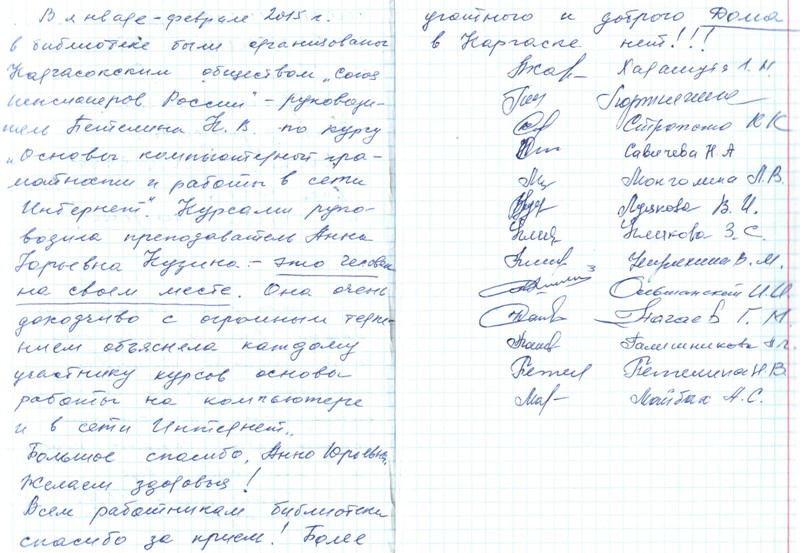 В январе-феврале 2015 г.
в библиотеке были организованы
Каргасокским обществом „Союз
пенсионеров России" – руководи-
тель Петелина Н. В. по курсу
„Основы компьютерной гра-
мотности и работы в сети
Интернет". Курсами руко-
водила преподаватель Анна
Юрьевна Кузина – это человек
на своем месте. Она очень
доходчиво с огромным терпе-
нием объясняла каждому
участнику курсов основы
работы на компьютере
и в сети Интернет.
Большое спасибо, Анна Юрьевна,
желаем здоровья!
Всем работникам библиотеки
спасибо за прием! Более
уютного и доброго Дома
в Каргаске нет!!!
Л. Н.
К К
Савичева Н. А
Монголина Л. В.
В. И.
Клюкова З. С.
В. М.
Ольшанский И. И.
Тагаев Г. М.
Галишникова
Петел Петелина Н. В.
Май- Майбах А. С.